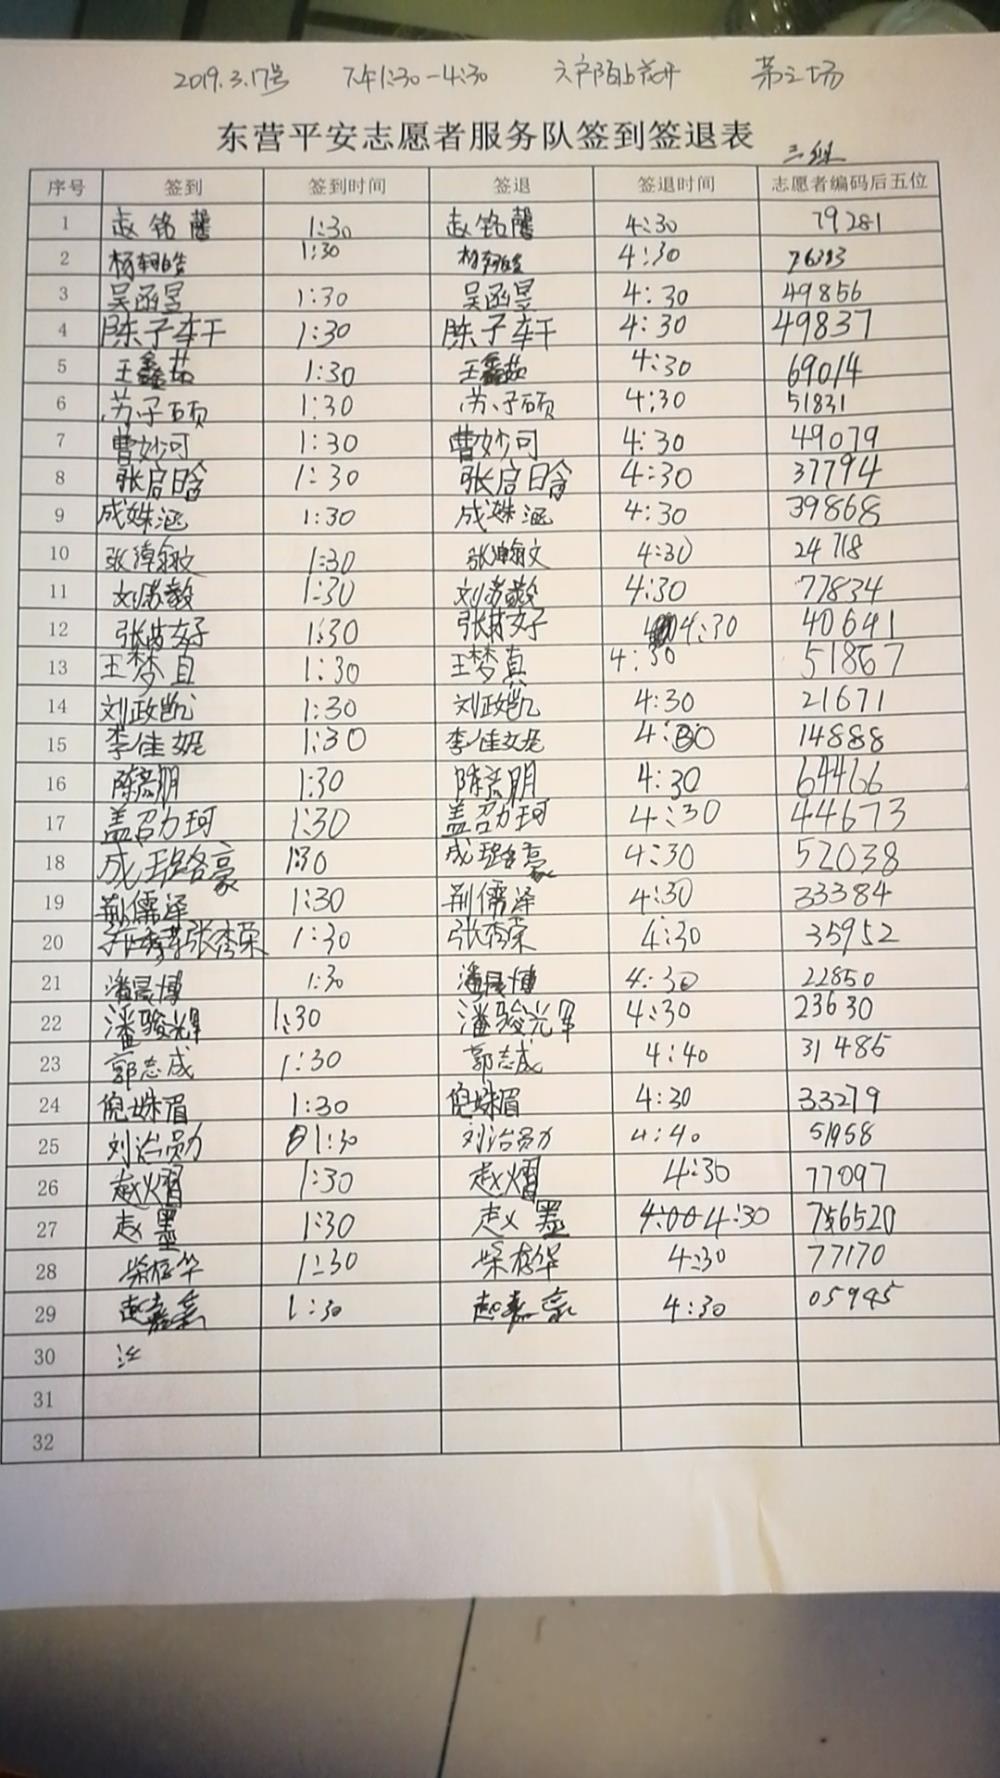 2019.3.17号 下午1:30-4:30 六户陌上花开 第三场
东营平安志愿者服务队签到签退表
三组
序号 签到 签到时间 签退 签退时间 志愿者编码后五位
1 赵铭馨 1:30 赵铭馨 4:30 79281
2 杨轲皓 1:30 杨轲皓 4:30
3 吴函昱 1:30 吴函昱 4:30 49856
4 陈子轩 1:30 陈子轩 4:30 49837
5 王鑫茹 1:30 王鑫茹 4:30 69014
6 苏子硕 1:30 苏子硕 4:30 51831
7 曹妙可 1:30 曹妙可 4:30 49079
8 张启晗 1:30 张启晗 4:30 37794
9 成姝涵 1:30 成姝涵 4:30 39868
10 1:30 4:30 24718
11 刘苏毅 1:30 刘苏毅 4:30 77834
12 1:30 4:30 40641
13 王梦真 1:30 王梦真 4:30 51867
14 刘政凯 1:30 刘政凯 4:30 21671
15 李佳妮 1:30 李佳妮 4:30 14888
16 陈彦明 1:30 陈彦明 4:30 64466
17 盖召力珂 1:30 盖召力珂 4:30 44673
18 成璐豪 1:30 成璐豪 4:30 52038
19 荆儒泽 1:30 荆儒泽 4:30 33384
20 张秀荣 1:30 张秀荣 4:30 35952
21 潘晨博 1:30 潘晨博 4:30 22850
22 潘骏辉 1:30 潘骏辉 4:30 23630
23 郭志成 1:30 郭志成 4:40 31485
24 倪姝眉 1:30 倪姝眉 4:30 33279
25 刘治勋 1:30 刘治勋 4:40 51958
26 赵熠 1:30 赵熠 4:30 77097
27 赵墨 1:30 赵墨 4:00 4:30 756520
28 柴存华 1:30 柴存华 4:30 77170
29 赵嘉豪 1:30 赵嘉豪 4:30 05945
30
31
32